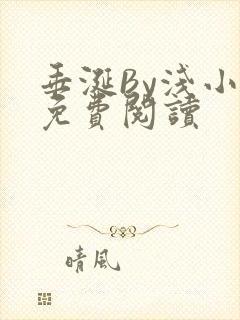 垂涎By淺小
免費閱讀
晴風